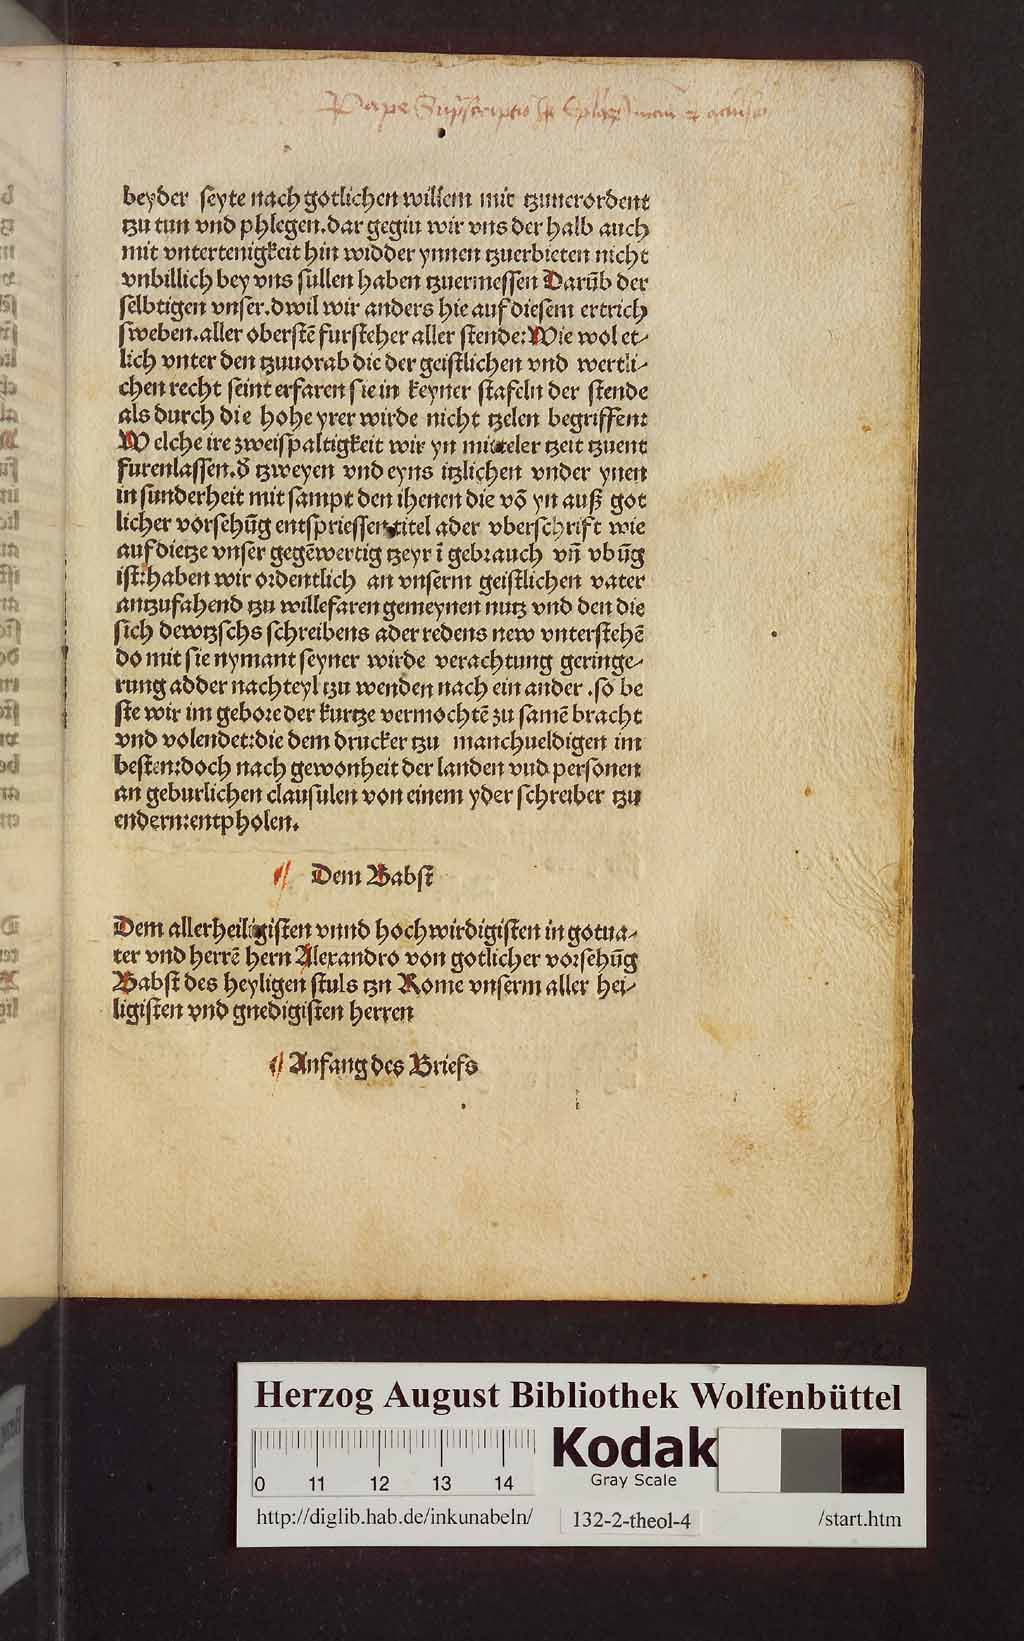 Pape
beyder seyte nach gotlichen willem mit tzuuerordent
tzu tun vnd phlegen.dar gegin wir vns der halb auch
mit vntertenigkeit hin widder ynnen tzuerbieten nicht
vnbillich bey vns sullen haben tzuermessen Darūb der
selbtigen vnser.dwil wir anders hie auf diesem ertrich
sweben.aller oberstē fursteher aller stende:Wie wol et-
lich vnter den tzuuorab die der geistlichen vnd wertli-
chen recht seint erfaren sie in keyner stafeln der stende
als durch die hohe yrer wirde nicht tzelen begriffen:
Welche ire zweispaltigkeit wir yn mitteler tzeit tzuent
furenlassen.đ tzweyen vnd eyns itzlichen vnder ynen
in sunderheit mit sampt den ihenen die vō yn auß got
licher vorsehūg entspriessen titel ader vberschrift wie
auf dietze vnser gegēwertig tzeyr ī gebrauch vn̄ vbūg
ist:haben wir ordentlich an vnserm geistlichen vater
antzufahend tzu willefaren gemeynen nutz vnd den die
sich dewtzschs schreibens ader redens new vnterstehē
do mit sie nymant seyner wirde verachtung geringe-
rung adder nachteyl tzu wenden nach ein ander .so be
ste wir im gebore der kurtze vermochtē zu samē bracht
vnd volendet:die dem drucker tzu manchueldigen im
besten:doch nach gewonheit der landen vnd personen
an geburlichen clausulen von einem yder schreiber tzu
endern:entpholen.
Dem Babst
Dem allerheiligisten vnnd hochwirdigisten in gotua-
ter vnd herrē hern Alexandro von gotlicher vorsehūg
Babst des heyligen stuls tzu Rome vnserm aller hei-
ligisten vnd gnedigisten herren
Anfang des Briefs
Herzog August Bibliothek Wolfenbüttel
0 11 12 13 14
Kodak
Gray Scale
http://diglib.hab.de/inkunabeln/ 132-2-theol-4 /start.htm